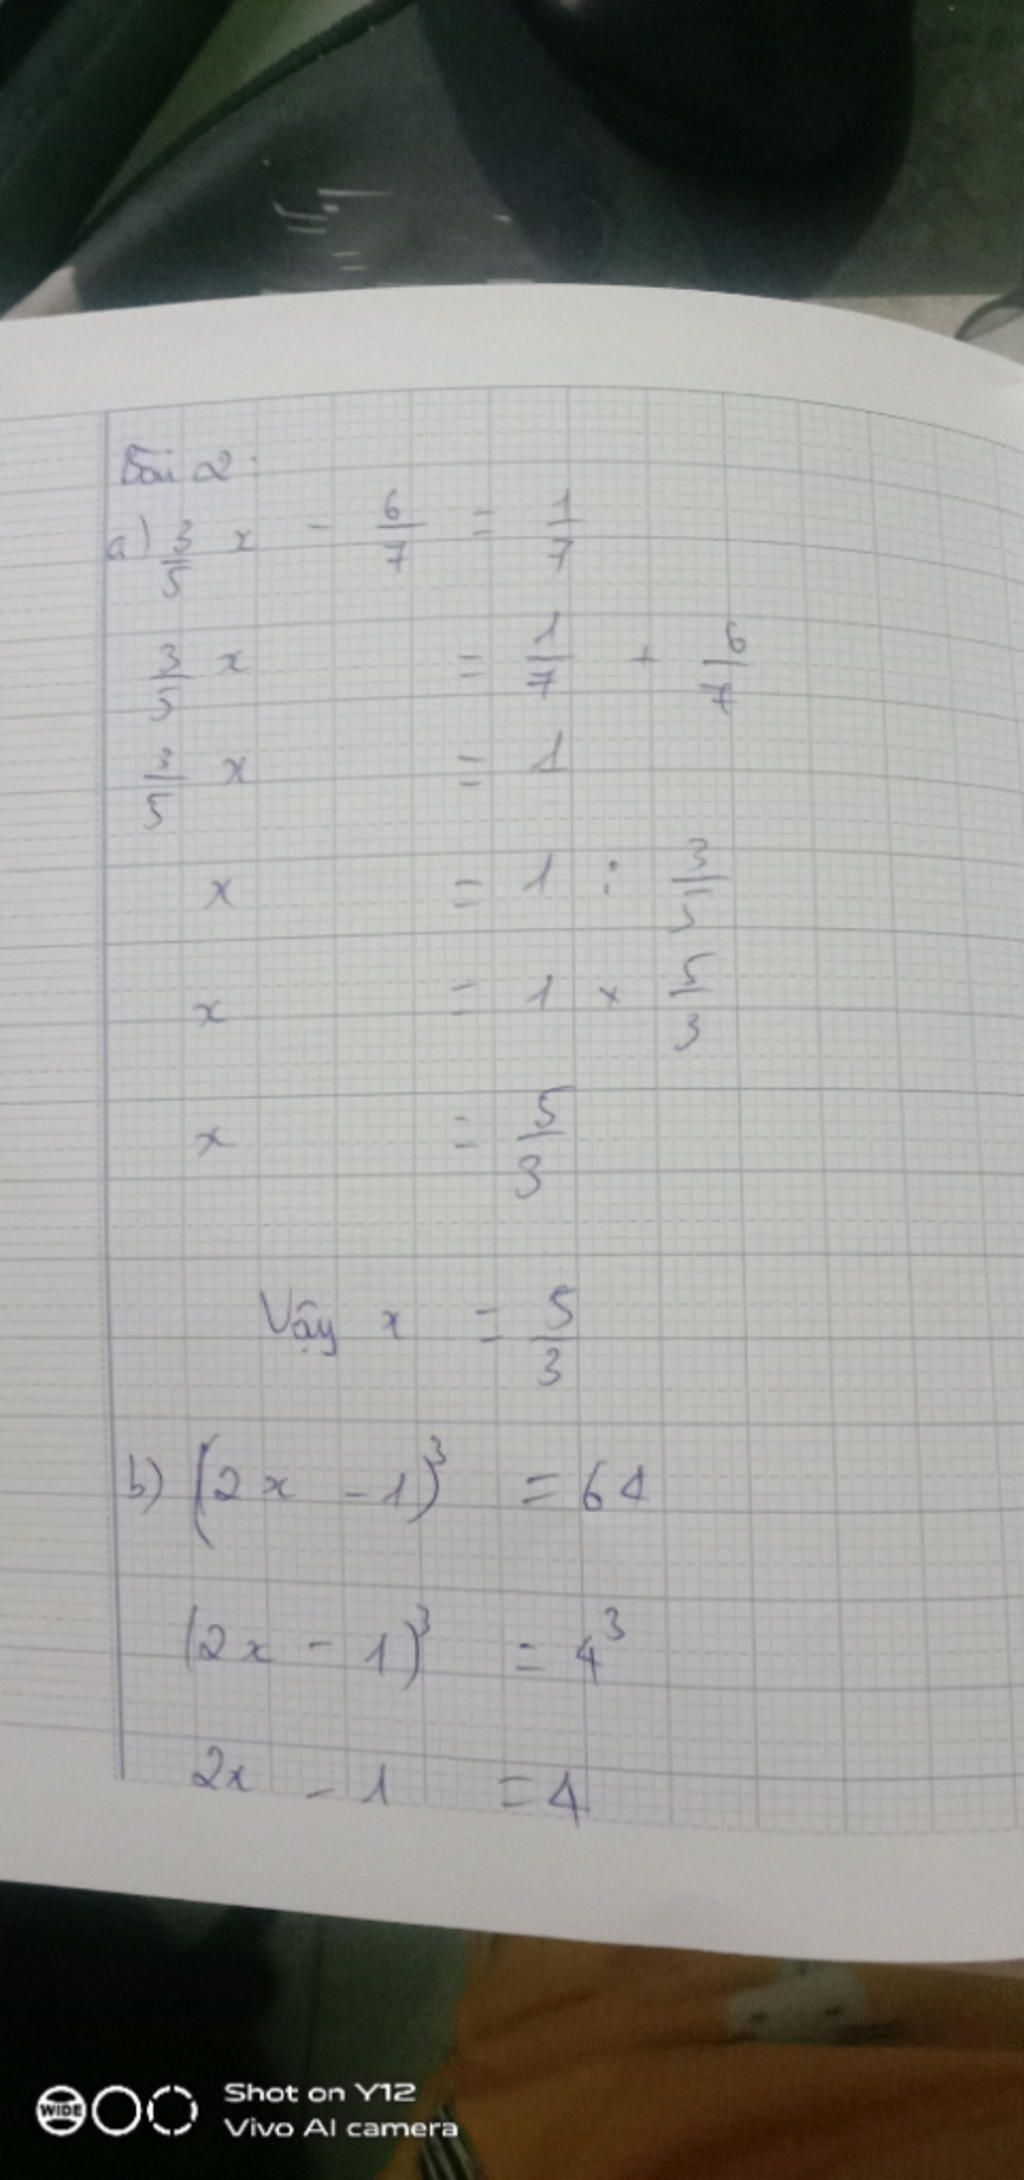 Bài 2:
a) 3/5 x - 6/7 = 1/7
3/5 x = 1/7 + 6/7
3/5 x = 1
x = 1 : 3/5
x = 1 × 5/3
x = 5/3
Vậy x = 5/3
b) (2x - 1)³ = 64
(2x - 1)³ = 4³
2x - 1 = 4
WIDE
Shot on Y12
Vivo AI camera